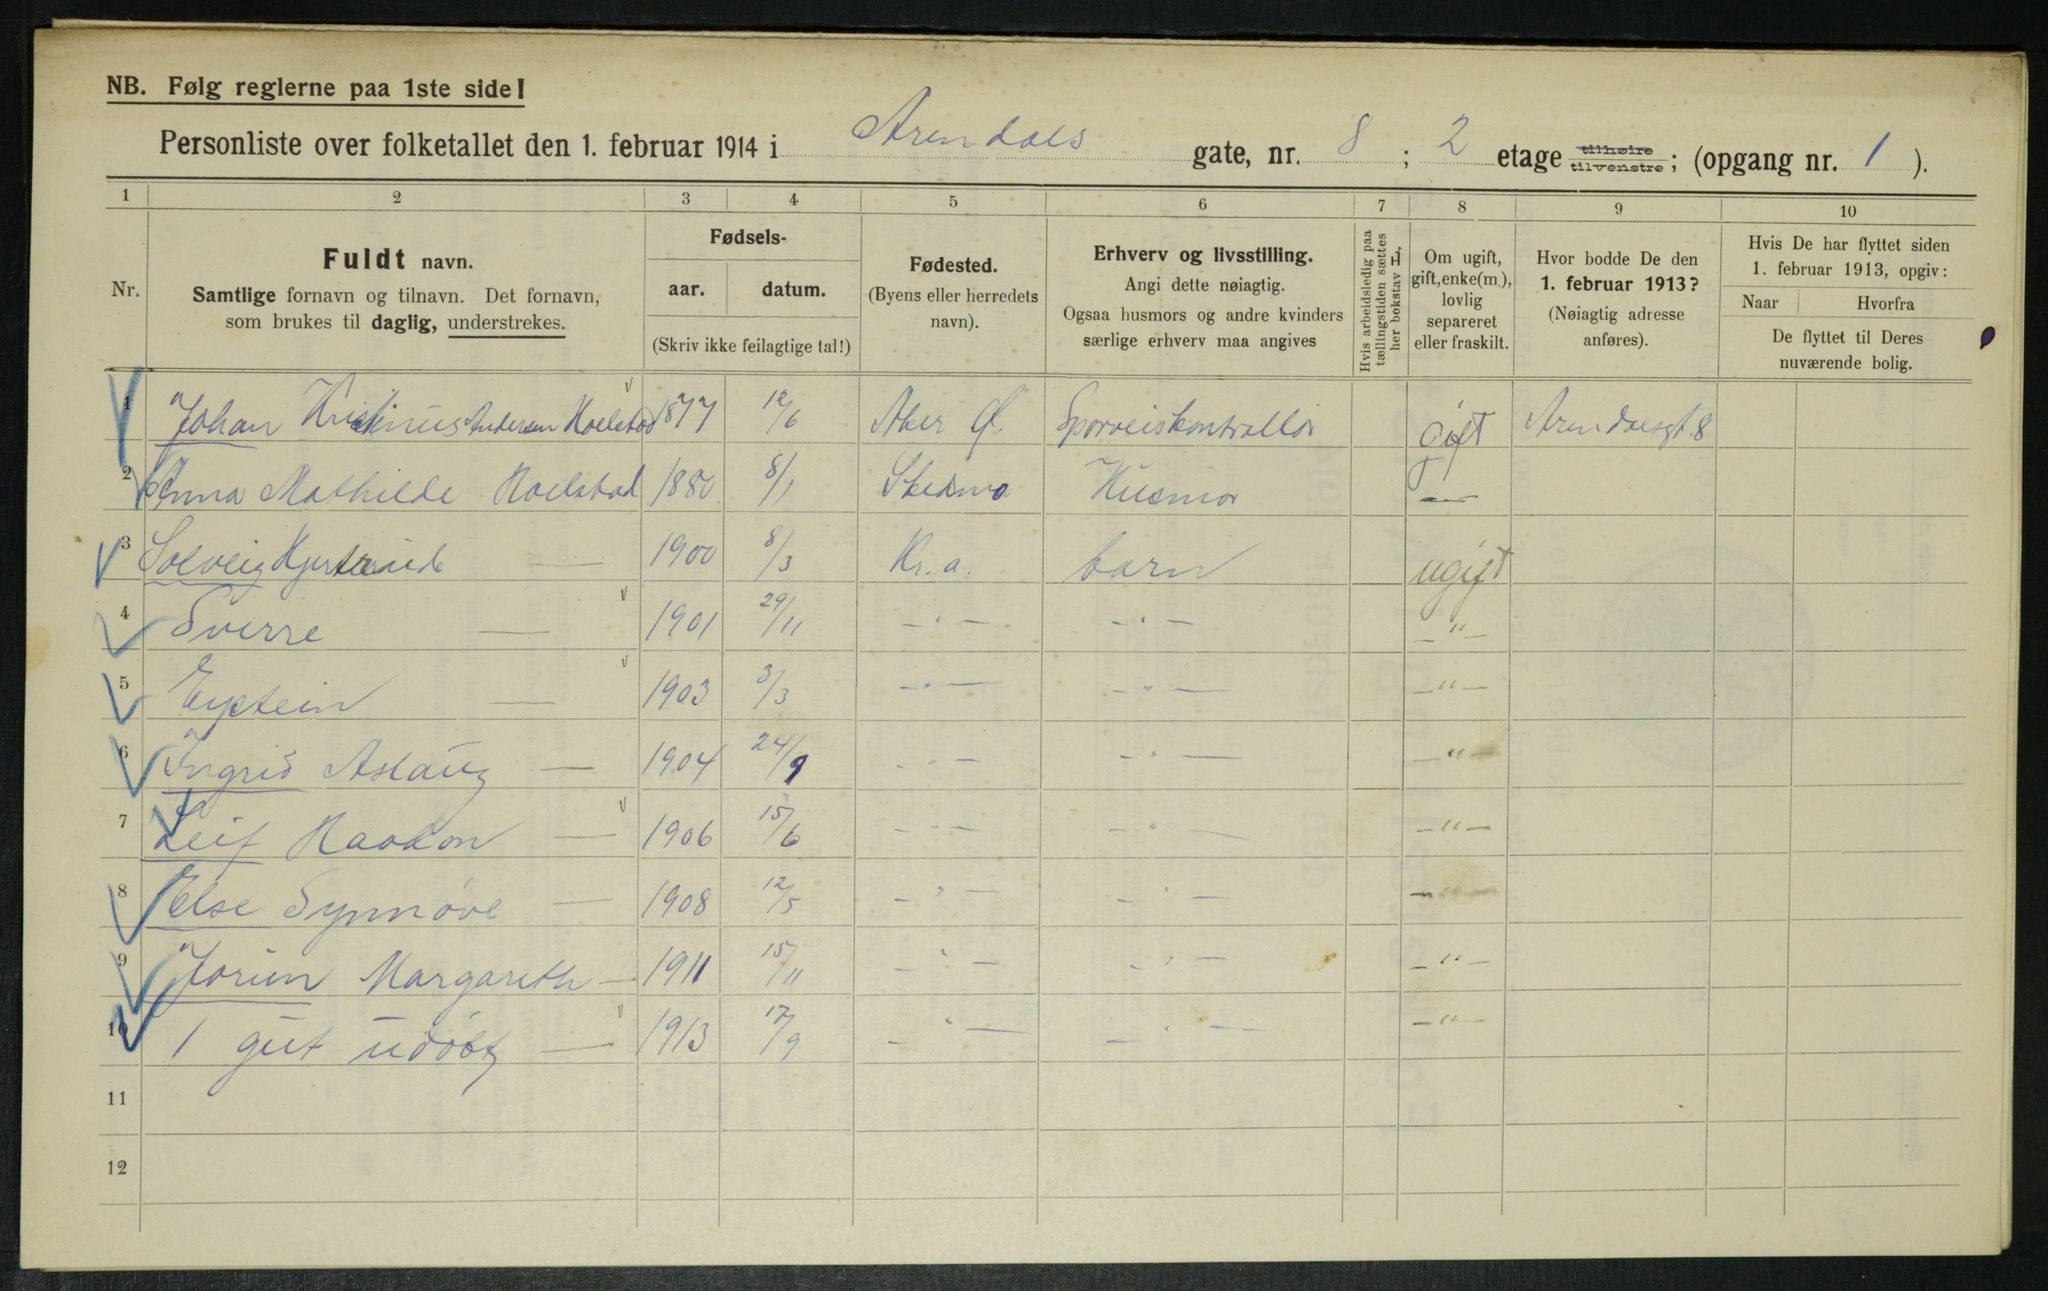 NB. Følg reglerne paa 1ste side!
Personliste over folketallet den 1. februar 1914 i Arendals gate, nr. 8 ; 2 etage tilhøire tilvenstre; (opgang nr. 1 ).
1 2 3 4 5 6 7 8 9 10
Nr.
Fuldt navn.
Samtlige fornavn og tilnavn. Det fornavn,
som brukes til daglig, understrekes.
Fødsels-
aar. datum.
(Skriv ikke feilagtige tal!)
Fødested.
(Byens eller herredets
navn).
Erhverv og livsstilling.
Angi dette nøiagtig.
Ogsaa husmors og andre kvinders
særlige erhverv maa angives
Hvis arbeidsledig paa
tællingstiden sættes
her bokstav L,
Om ugift,
gift, enke(m.),
lovlig
separeret
eller fraskilt.
Hvor bodde De den
1. februar 1913?
(Nøiagtig adresse
anføres).
Hvis De har flyttet siden
1. februar 1913, opgiv:
Naar Hvorfra
De flyttet til Deres
nuværende bolig.
1 Johan Kristinus Andersen Roelstad 1877 12/6 Aker Ø. Sporveiskontrollør gift Arendalsgt. 8
2 Anna Mathilde Roelstad 1880 8/1 Skedsmo Husmor —
3 Solveig — 1900 8/3 Kr.a. barn ugift
4 Sverre — 1901 29/11 — " — — " — — " —
5 Eystein — 1903 3/3 — " — — " — — " —
6 Ingrid Aslaug — 1904 24/9 — " — — " — — " —
7 Leif Haakon — 1906 15/6 — " — — " — — " —
8 Else Synnøve — 1908 12/5 — " — — " — — " —
9 Jorun Margareth — 1911 15/11 — " — — " — — " —
10 1 gut udøbt — 1913 17/9 — " — — " — — " —
11
12